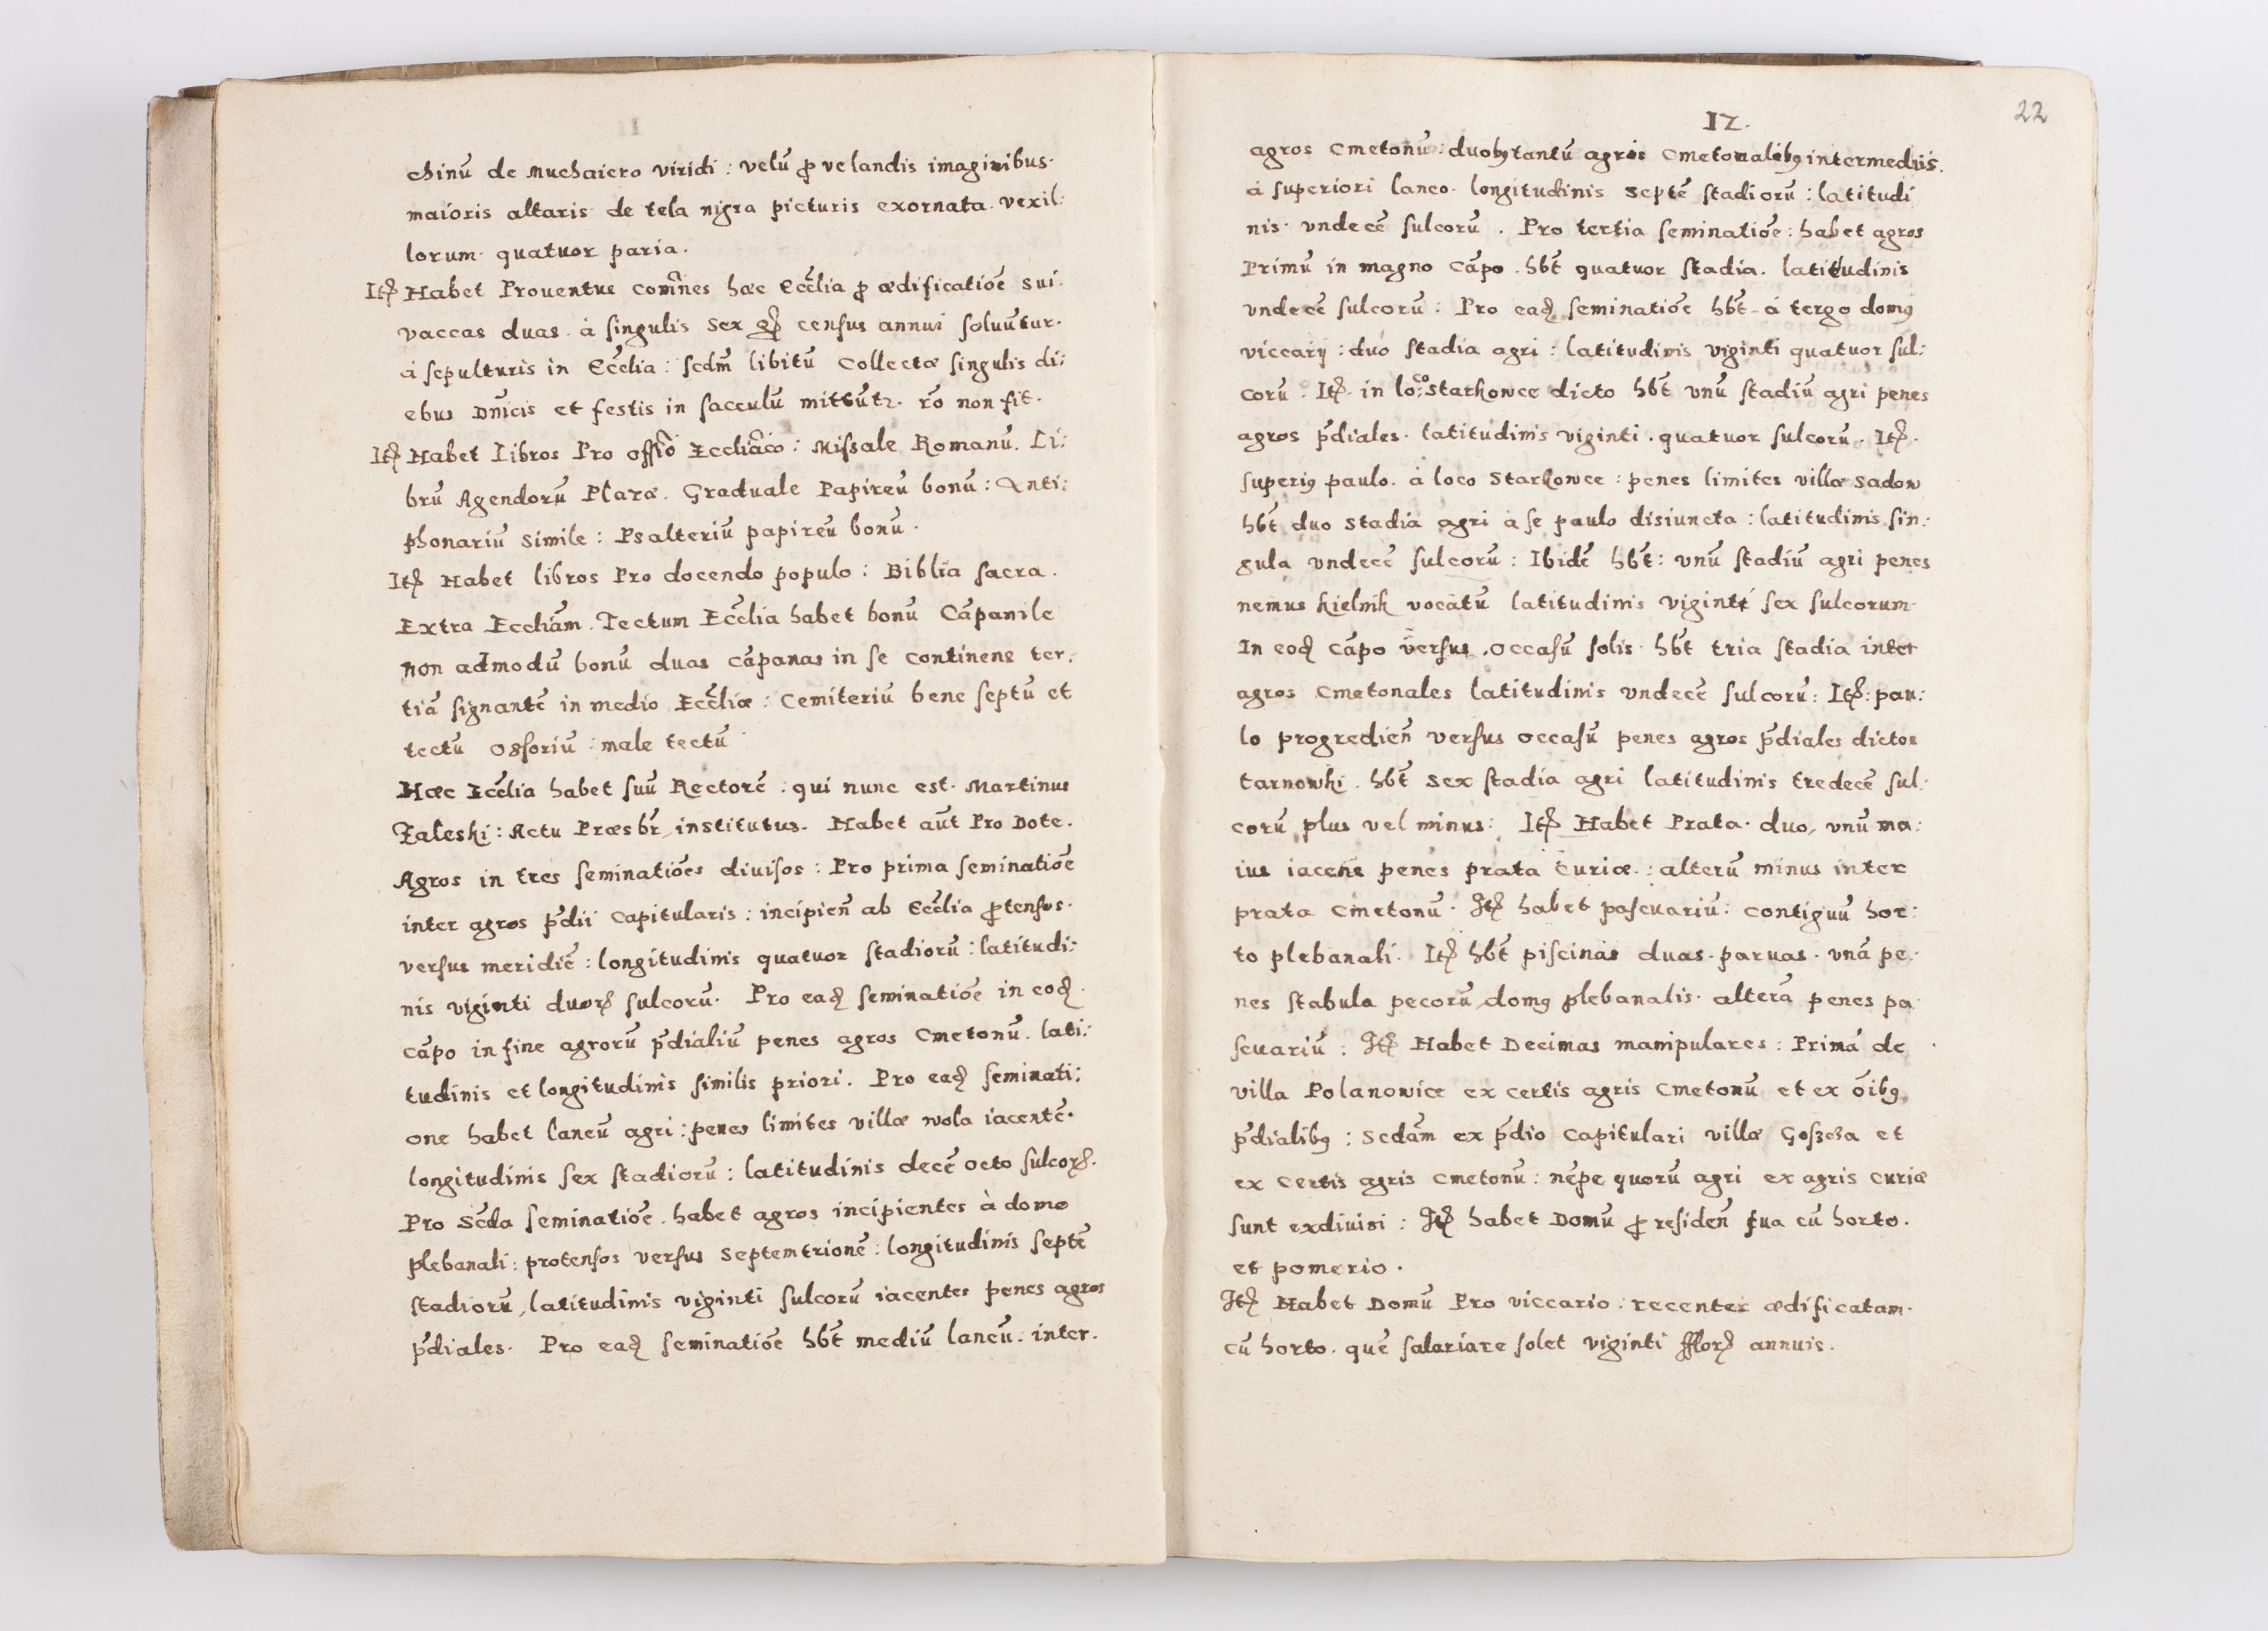 chinū de Muchaiero viridi : velū ꝓ velandis imaginibus·
maioris altaris de tela nigra picturis exornata. vexil:
lorum· quatuor paria.
Itꝫ Habet Prouentus com̄nes hæc Eccl̄ia ꝓ ædificatiōe sui·
vaccas duas· á singulis sex census annui soluūtur·
á sepulturis in Eccl̄ia : sedm̄ libitū Collectæ singulis di:
ebus Dn̄icis et festis in sacculū mittūtr. rō non fit·
Itꝫ Habet Libros Pro offīo Eccliāco : Missale Romanū. Li:
brū Agendorū Plaræ. Graduale Papireū bonū : Anti:
phonariū simile : Psalteriū papireū bonū.
Itꝫ Habet libros Pro docendo populo : Biblia sacra.
Extra Eccliām. Tectum Eccl̄ia habet bonū Cāpanile
non admodū bonū duas cāpanas in se continens ter:
tiā signantē in medio Eccl̄iæ : Cemiteriū bene septū et
tectū ossoriū : male tectū
Hæc Eccl̄ia habet suū Rectorē : qui nunc est· Martinus
Zaleski : Actu Præsbr̄ institutus. Habet aūt Pro Dote.
Agros in tres seminatiōes diuisos : Pro prima seminatiōe
inter agros p̄dii Capitularis : incipien̄ ab Eccl̄ia ꝓtensos·
versus meridiē : longitudinis quatuor stadiorū : latitudi:
nis viginti duorꝫ sulcorū· Pro eadꝫ seminatiōe in eodꝫ·
cāpo in fine agrorū p̄dialiū penes agros Cmetonū. lati:
tudinis et longitudinis similis priori. Pro eadꝫ seminati:
one habet laneū agri : penes limites villæ Wola iacentē·
longitudinis sex stadiorū : latitudinis decē octo sulcorꝫ.
Pro Scd̄a seminatiōe. habet agros incipientes à domo
plebanali : protensos versus Septemtrionē : longitudinis septē
stadiorū, latitudinis viginti sulcorū iacentes penes agros
p̄diales· Pro eadꝫ seminatiōe hb̄t mediū laneū : inter.
22
12.
agros Cmetonū : duobꝫ tantū agris Cmetonalibꝫ intermediis.
á superiori laneo· longitudinis Septē stadiorū : latitudi
nis· vndecē sulcorū. Pro tertia seminatiōe : habet agros
Primū in magno Cāpo. hb̄t quatuor stadia. latitudinis
vndecē sulcorū : Pro eadꝫ seminatiōe hb̄t á tergo domꝰ
viccarij : duo stadia agri : latitudinis viginti quatuor sul:
corū : Itꝫ· in loco Starkowce dicto hb̄t vnū stadiū agri penes
agros p̄diales· latitudinis viginti. quatuor sulcorū. Itꝫ.
superiꝰ paulo. á loco Starkowce : penes limites villæ Sadow
hb̄t duo stadia agri á se paulo disiuncta : latitudinis sin:
gula vndecē sulcorū : Ibidē hb̄t : vnū stadiū agri penes
nemus Kielnik vocatū latitudinis viginti sex sulcorum·
In eodꝫ cāpo versus occasū solis· hb̄t tria stadia inter
agros Cmetonales latitudinis vndecē sulcorū : Itꝫ : pau:
lo progredien̄ versus occasū penes agros p̄diales dictos
tarnowki. hb̄t sex stadia agri latitudinis tredecē sul:
corū plus vel minus : Itꝫ Habet Prata· duo, vnū ma:
ius iacens penes prata Curiæ : alterū minus inter
prata Cmetonū· Itꝫ habet pascuariū : contiguū hor:
to plebanali. Itꝫ hb̄t piscinas duas· paruas· vnā pe:
nes stabula pecorū domꝰ plebanalis· alterā penes pa
scuariū : Itꝫ Habet Decimas manipulares : Primā de
villa Polanowice ex certis agris Cmetonū et ex ōibꝫ
p̄dialibꝫ : Scd̄am ex p̄dio Capitulari villæ Goszcza et
ex certis agris Cmetonū : nēpe quorū agri ex agris Curiæ
sunt exdiuisi : Itꝫ habet Domū ꝓ residen̄ sua cū horto.
et pomerio.
Itꝫ Habet Domū Pro viccario : recenter ædificatam·
cū horto. quē salariare solet viginti fflorꝫ annuis.